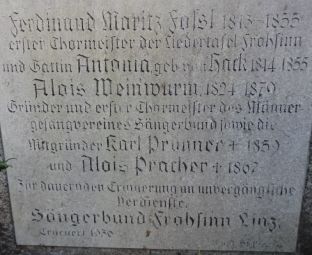 Ferdinand Maritz Fossl 1813-1855
erster Chormeister der Liedertafel Frohsinn
und Gattin Antonia, geb. von Hack 1814 1855
Alois Weinwurm, 1824 1879
Gründer und erster Chormeister des Männer
gesangvereines Sängerbund sowie die
Mitgründer Karl Prunner + 1859
und Alois Pracher + 1867
Zur dauernden Erinnerung an unvergängliche
Verdienste.
Sängerbund Frohsinn Linz.
Erneuert 1936